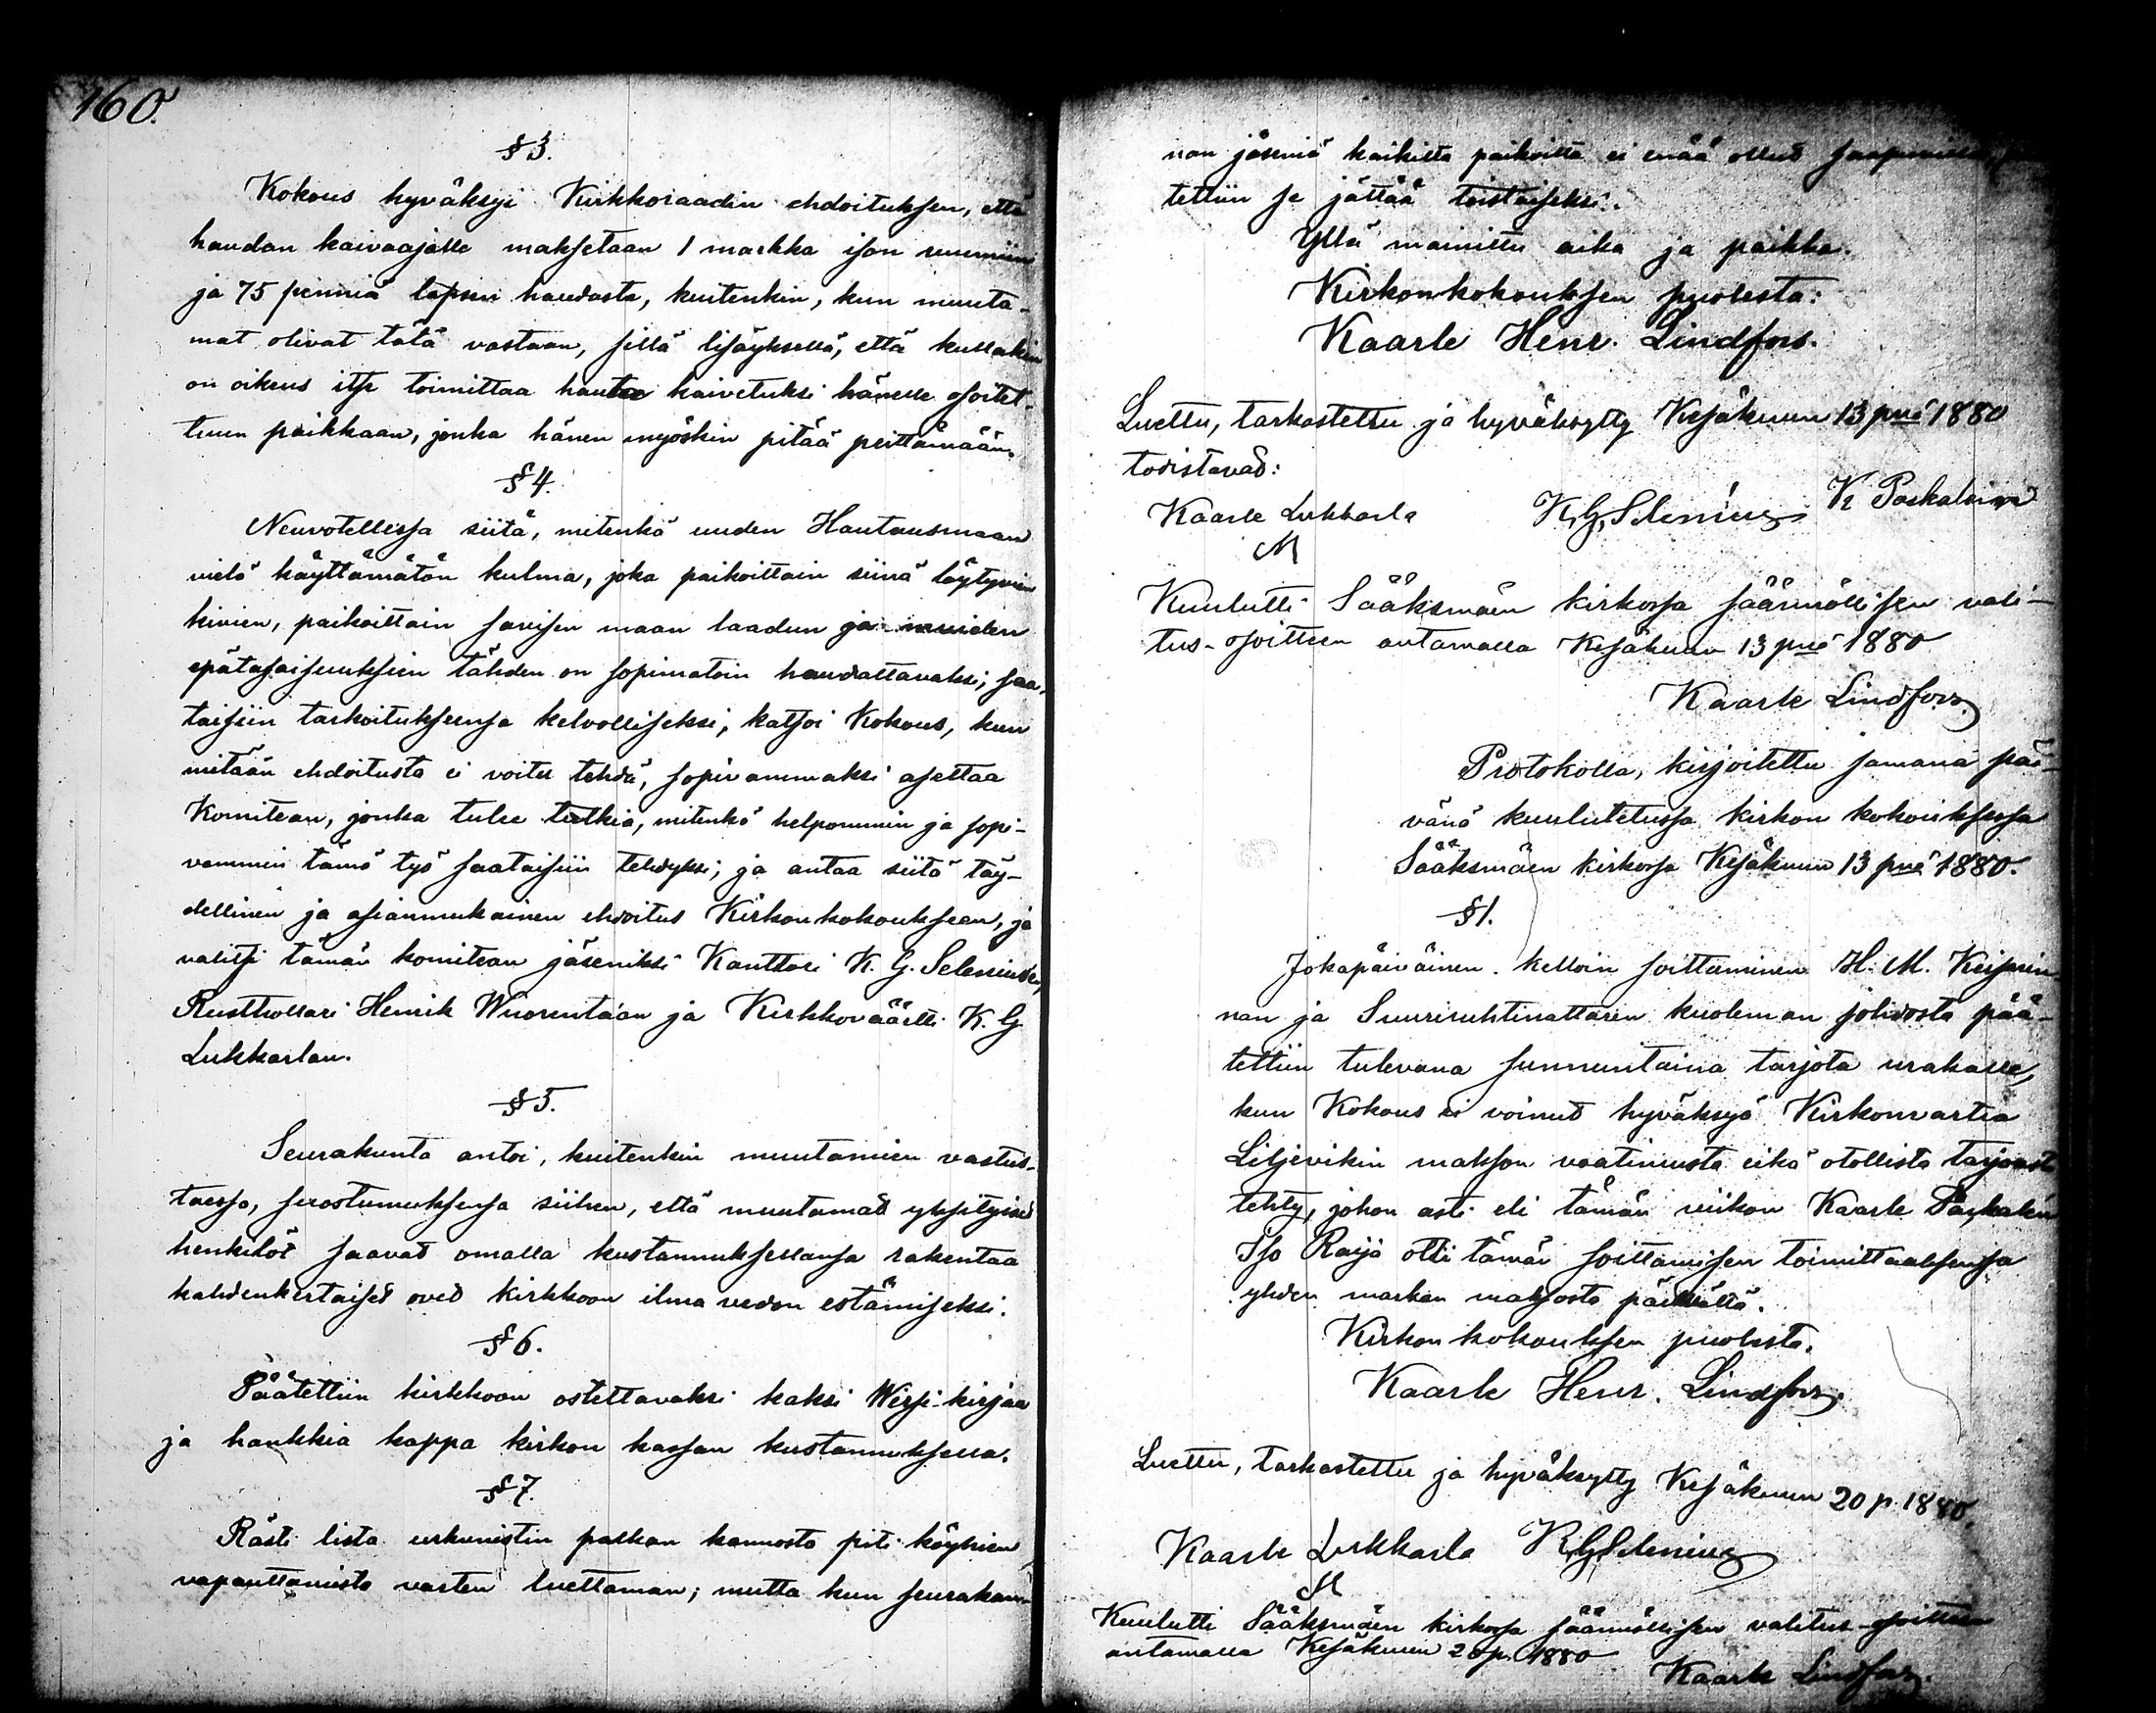 160.
§ 3.
Kokous hyväksyi Kirkkoraadin ehdoituksen, että
haudan kaivaajalle maksetaan 1 markka ison ruumiin
ja 75 penniä lapsen haudasta, kuitenkin, kun muuta-
mat olivat tätä vastaan, sillä lisäyksellä, että kullakin
on oikeus itse toimittaa hautaa kaivetuksi hänelle osoitet-
tuun paikkaan, jonka hänen myöskin pitää peittämään.
§ 4.
Neuvotellessa siitä, mitenkä uuden Hautausmaan
vielä käyttämätön kulma, joka paikoittain siinä löytyvien
kivien, paikoittain savisen maan laadun ja muiden
epätasaisuuksien tähden on sopimatoin haudattavaksi, saa-
taisiin tarkoitukseensa kelvolliseksi, katsoi Kokous, kun
mitään ehdoitusta ei voitu tehdä, sopivammaksi asettaa
Komitean, jonka tulee tutkia, mitenkä helpommin ja sopi-
vammin tämä työ saataisiin tehdyksi, ja antaa siitä täy-
dellinen ja asianmukainen ehdoitus Kirkonkokoukseen, ja
valitsi tämän komitean jäseniksi Kanttori K. G. Seleniuksen,
Rusthollari Henrik Wuorentaan ja Kirkkoväärtti K. G.
Lukkarlan.
§ 5.
Seurakunta antoi, kuitenkin muutamien vastus-
taessa, suostumuksensa siihen, että muutamat yksityiset
henkilöt saavat omalla kustannuksellansa rakentaa
kahdenkertaiset ovet kirkkoon ilma vedon estämiseksi.
§ 6.
Päätettiin kirkkoon ostettavaksi kaksi Wirsi-kirjaa
ja hankkia kappa kirkon kassan kustannuksella.
§ 7.
Rästi lista urkunistin palkan kannosta piti köyhien
vapauttamista varten luettaman; mutta kun seurakun-
nan jäseniä kaikista paikoista ei enää ollut saapuvilla,
tettiin se jättää toistaiseksi.
Yllä mainittu aika ja paikka.
Kirkonkokouksen puolesta:
Kaarle Henr. Lindfors.
Luettu, tarkastettu ja hyväksytty Kesäkuun 13 pnä 1880
todistavat:
Kaarle Lukkarla K. G. Selenius K
Kuulutti Sääksmäen kirkossa säännöllisen vali-
tus-osoitteen antamalla Kesäkuun 13 pnä 1880
Kaarle Lindfors
Protokolla, kirjoitettu samana päi-
vänä kuulutetussa kirkon kokouksessa
Sääksmäen kirkossa Kesäkuun 13 pnä 1880.
§ 1.
Jokapäiväinen kelloin soittaminen H. M. Keisarin-
nan ja Suuriruhtinattaren kuoleman johdosta pää-
tettiin tulevana sunnuntaina tarjota urakalle,
kun Kokous ei voinut hyväksyä Kirkonvartia
Liljevikin makson vaatimusta eikä otollista tarjousta
tehty, johon asti eli tämän viikon Kaarle
Iso Raijo otti tämän soittamisen toimittaaksensa
yhden markan maksosta päivältä.
Kirkon kokouksen puolesta.
Kaarle Henr. Lindfors.
Luettu, tarkastettu ja hyväksytty Kesäkuun 20 p. 1880.
Kaarle Lukkarla K. G. Selenius
Kuulutti Sääksmäen kirkossa säännöllisen valitus-osoitteen
antamalla Kesäkuun 20 p. 1880
Kaarle Lindfors.